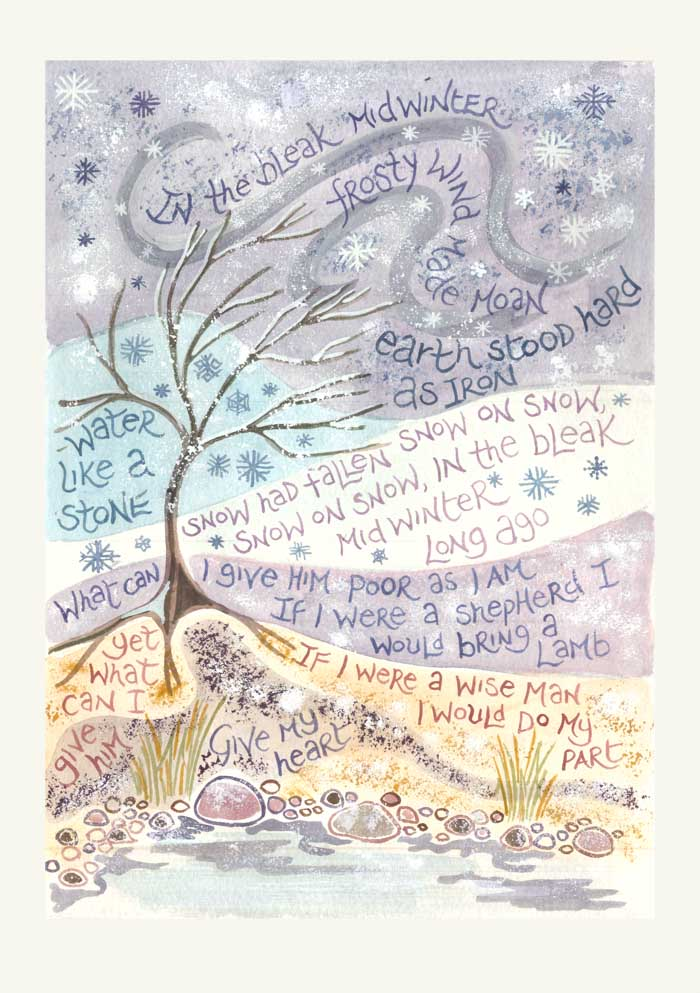 IN the bleak MiDWINTER
frosty WIND made MOAN
earth stood hard
as IRON
WateR
Like a
STONE
SNOW had falleN SNOW ON SNOW,
SNOW ON SNOW, IN the bleak
MIDWINTER
LONG ago
What can I give HIM POOR as I AM
IF I WERE a SHEPHERd I
WOULd bRING a
LAMb
IF I WERE a WISE MAN
I WOULd DO MY
PART
yet
what
caN I
give
HIM
Give MY
heart